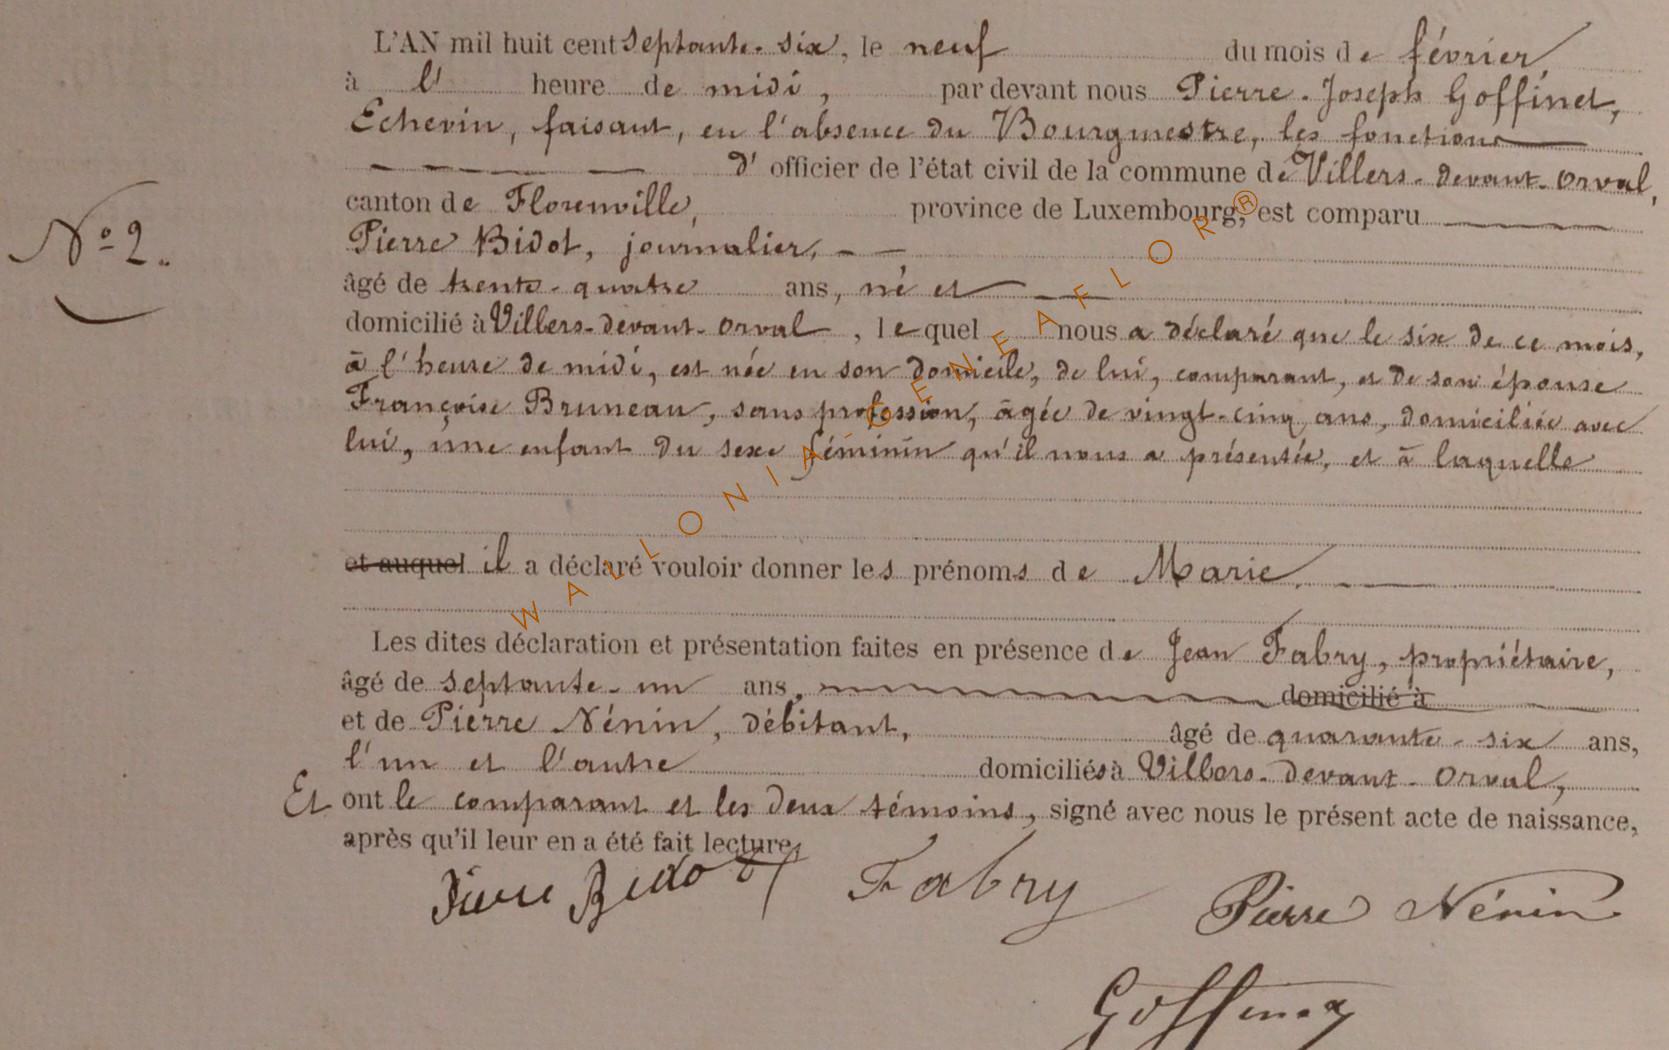 L'AN mil huit cent septante-six, le neuf du mois de février,
à l' heure de midi, par devant nous Pierre-Joseph Goffinet,
Echevin, faisant, en l'absence du Bourgmestre, les fonctions
d' officier de l'état civil de la commune de Villers-devant-Orval,
canton de Florenville, province de Luxembourg, est comparu
N° 2.
Pierre Bidot, journalier,
âgé de trente-quatre ans, né et
domicilié à Villers-devant-Orval, lequel nous a déclaré que le six de ce mois,
à l'heure de midi, est née en son domicile, de lui, comparant, et de son épouse
Françoise Bruneau, sans profession, âgée de vingt-cinq ans, domiciliée avec
lui, une enfant du sexe féminin qu'il nous a présentée, et à laquelle
et auquel il a déclaré vouloir donner les prénoms de Marie.
Les dites déclaration et présentation faites en présence de Jean Fabry, propriétaire,
âgé de septante-un ans, domicilié à
et de Pierre Nénin, débitant, âgé de quarante-six ans,
l'un et l'autre domiciliés à Villers-devant-Orval,
Et ont le comparant et les deux témoins, signé avec nous le présent acte de naissance,
après qu'il leur en a été fait lecture.
Pierre Bidot Fabry Pierre Nénin
Goffinet
WALLONIA-GENEAFLOR®